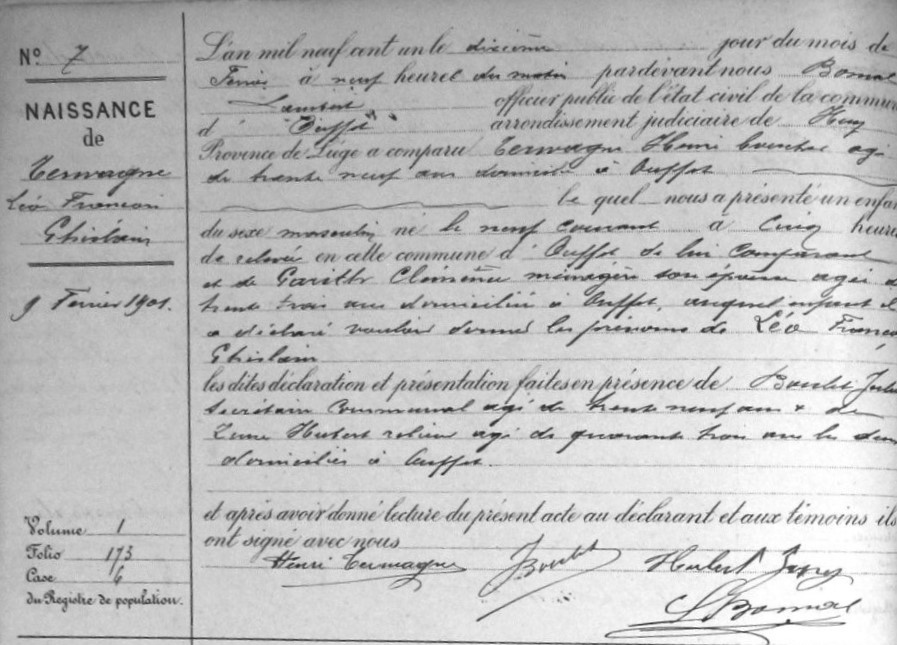 Nº 7
NAISSANCE
de
Terwagne
Léo François
Ghislain
9 Février 1901.
Volume 1
Folio 173
Case 6
du Registre de population.
L'an mil neuf cent un le dixième jour du mois de
Février à neuf heures du matin pardevant nous Bomal
Lambert officier public de l'état civil de la commune
d' Ouffet arrondissement judiciaire de Huy
Province de Liége a comparu Terwagne Henri agé
de trente neuf ans domicilié à Ouffet
le quel nous a présenté un enfant
du sexe masculin né le neuf courant à cinq heures
de relevée en cette commune d' Ouffet de lui comparant
et de Clémence ménagère son épouse agée de
trente trois ans domiciliée à Ouffet, auquel enfant il
a déclaré vouloir donner les prénoms de Léo François
Ghislain
les dites déclaration et présentation faites en présence de Boulet Jules
secrétaire communal agé de trente neuf ans & de
Hubert relieur agé de quarante trois ans les deux
domiciliés à Ouffet.
et après avoir donné lecture du présent acte au déclarant et aux témoins ils
ont signé avec nous
Henri Terwagne J Boulet Hubert
L Bomal